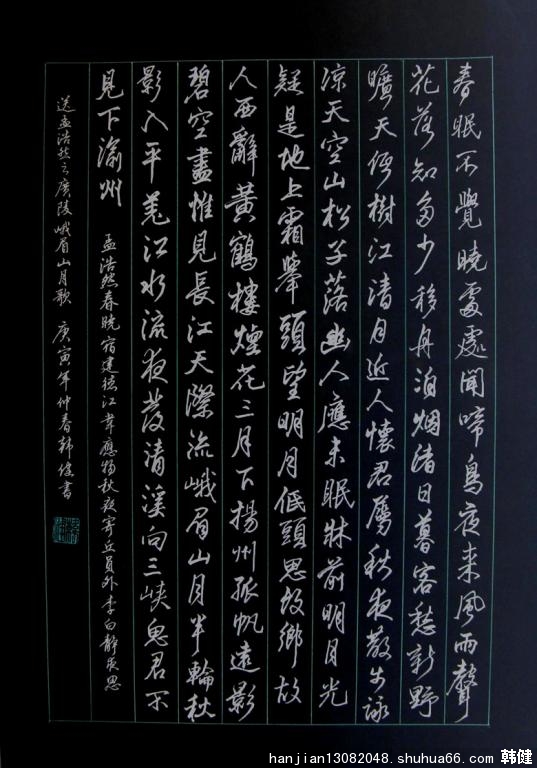 春眠不覺曉處處聞啼鳥夜来風雨聲
花落知多少移舟泊烟渚日暮客愁新野
曠天低樹江清月近人懷君屬秋夜散步詠
凉天空山松子落幽人應未眠牀前明月光
疑是地上霜舉頭望明月低頭思故鄉故
人西辭黃鶴樓煙花三月下揚州孤帆遠影
碧空盡惟見長江天際流峨眉山月半輪秋
影入平羌江水流夜發清溪向三峽思君不
見下渝州 孟浩然春曉宿建德江韋應物秋夜寄丘員外李白靜夜思
送孟浩然之廣陵峨眉山月歌 庚寅年仲春韓健書
hanjian13082048.shuhua66.com 韩健